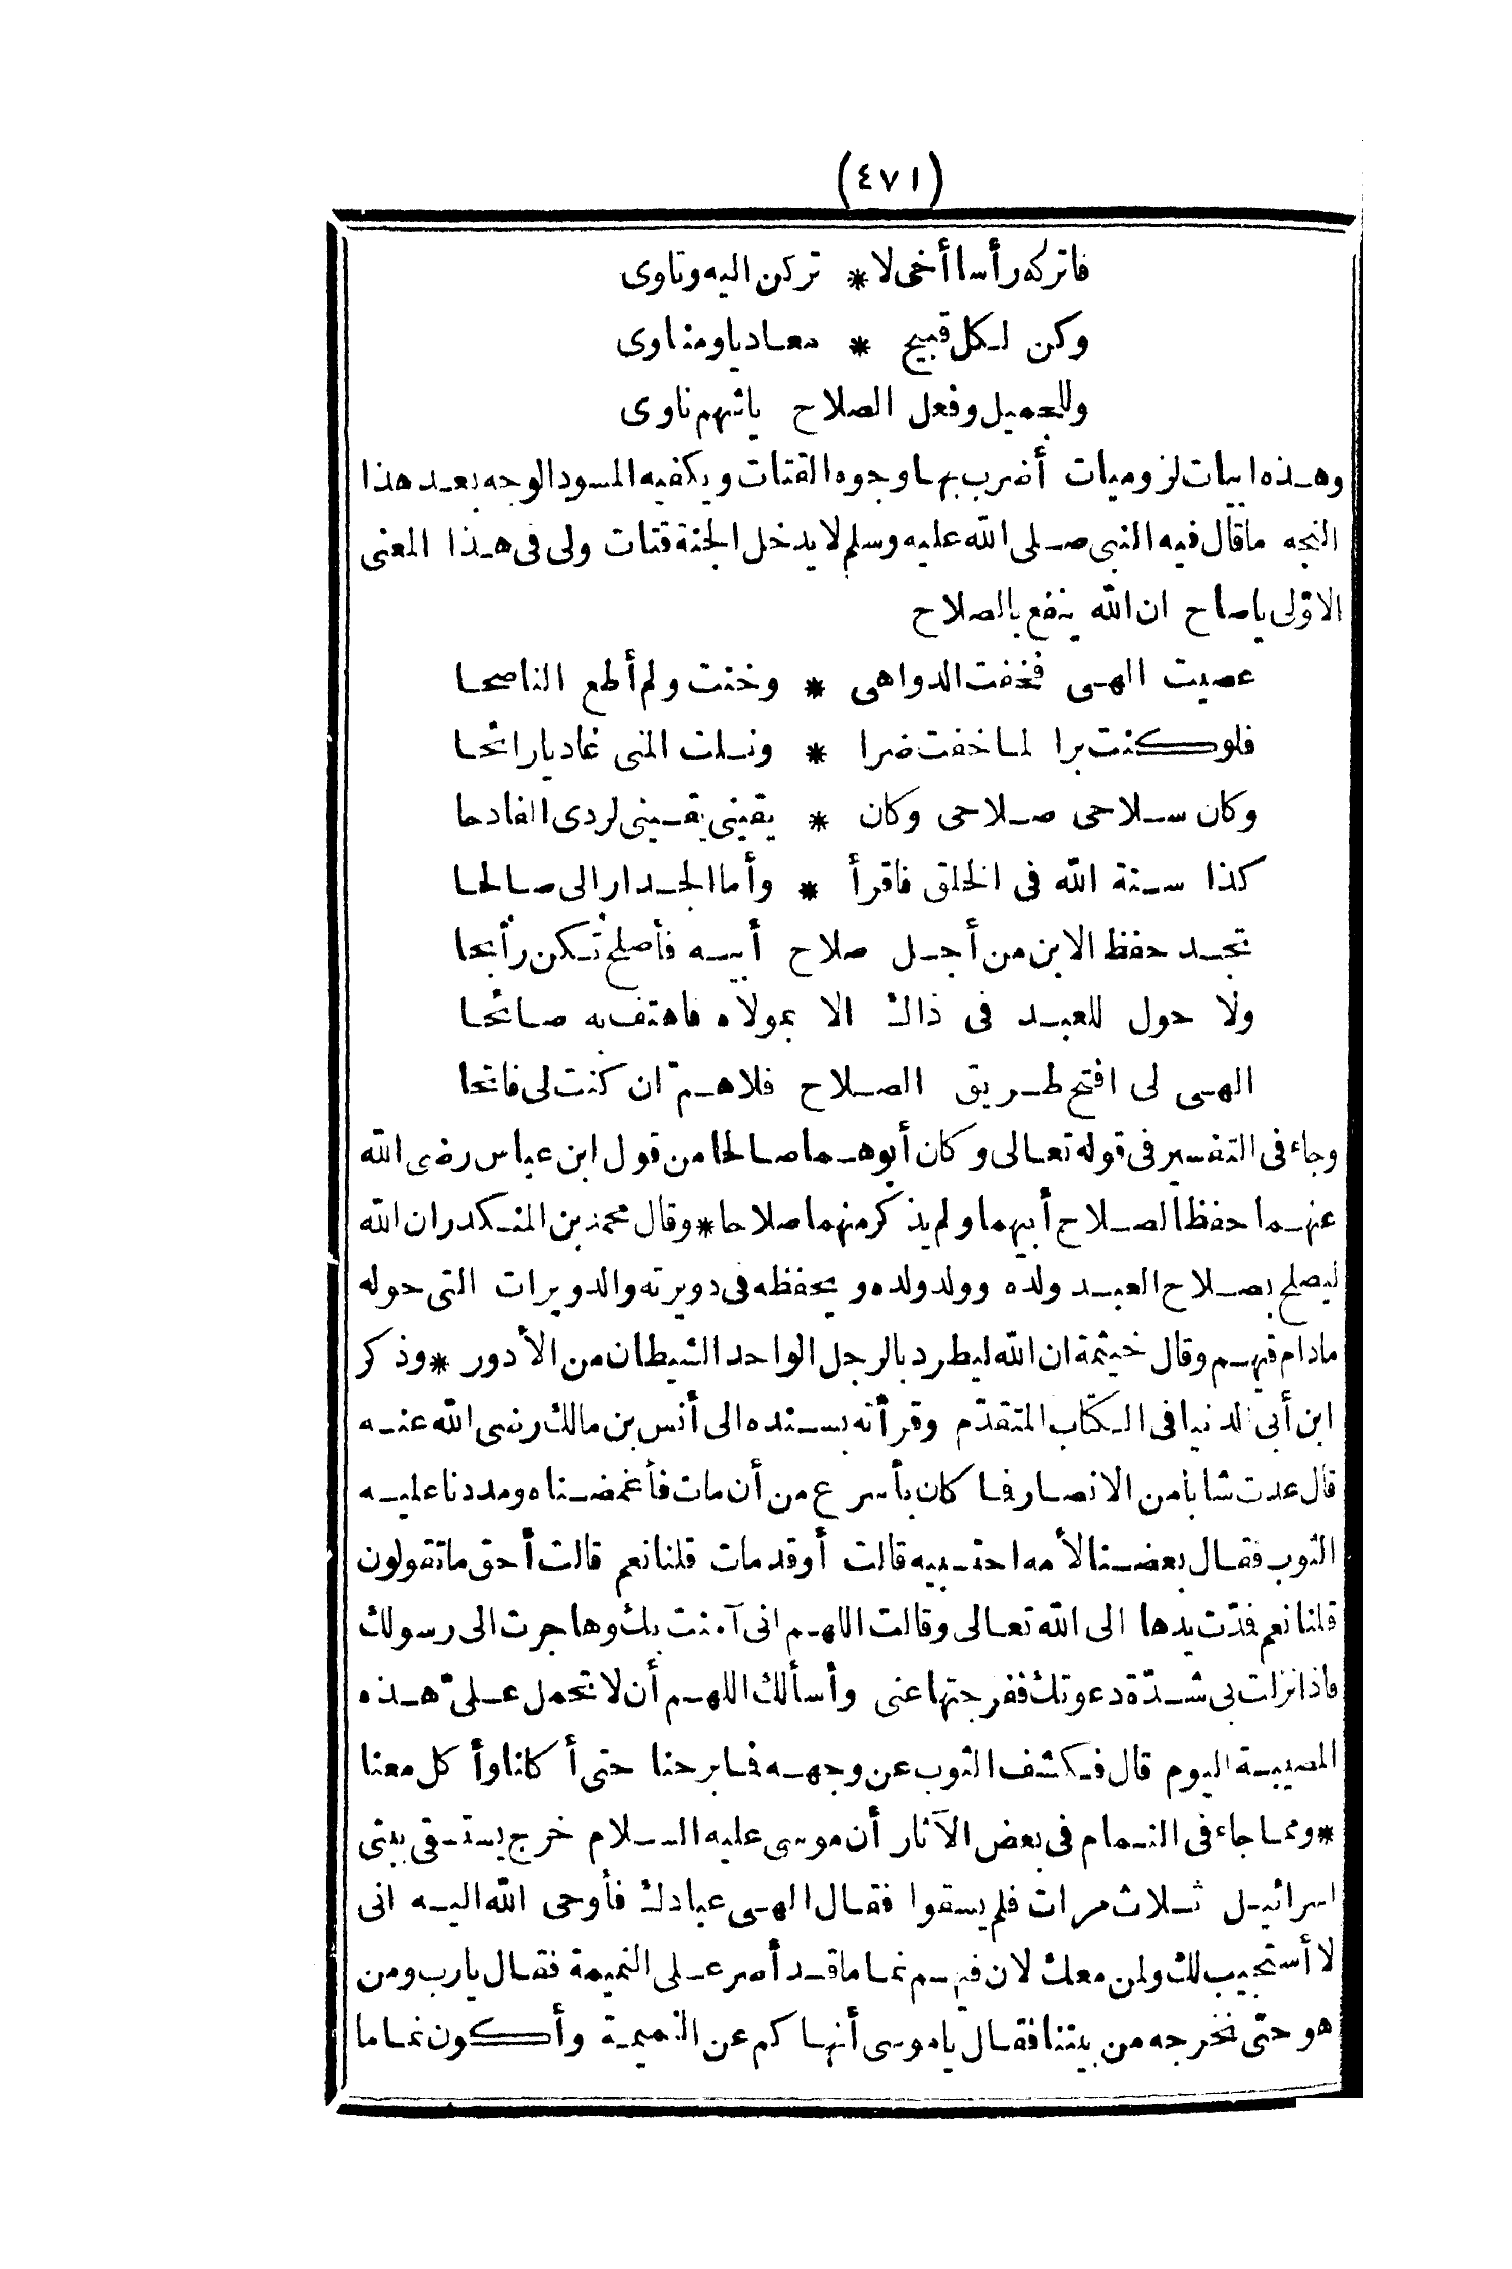 (٤٧١)
فاتركه رأسا أخى لا * تركن اليه وتاوى
وكن لكل قبيح * معاديا ومناوى
وللجميل وفعل الصلاح يا ثنهم ناوى
وهذه ابيات لزوميات أضرب بها وجوه القتات ويكفيه المسود الوجه بعد هذا
النجه ماقال فيه النبى صلى الله عليه وسلم لا يدخل الجنة قتات ولى فى هذا المعنى
الاوّلى ياصاح ان الله ينفع بالصلاح
عصيت الهى فخفت الدواهى * وخنت ولم أطع الناصحا
فلو كنت برا لما خفت ضرا * ونلت المنى غاديا رائحا
وكان سلاحى صلاحى وكان * يقينى يقينى لردى الفادحا
كذا سنة الله فى الخلق فاقرأ * وأما الجدار الى صالحا
تجد حفظ الابن من أجل صلاح أبيه فأصلح تكن رأبحا
ولا حول للعبد فى ذاك الا بمولاه فاهتف به صائحا
الهى لى افتح طريق الصلاح فلا همّ ان كنت لى فاتحا
وجاء فى التفسير فى قوله تعالى وكان أبوهما صالحا من قول ابن عباس رضى الله
عنهما حفظا لصلاح أبيهما ولم يذكر منهما صلاحا * وقال محمد بن المنكدر ان الله
ليصلح بصلاح العبد ولده وولد ولده ويحفظه فى دويرته والدويرات التى حوله
مادام فيهم وقال خيثمة ان الله ليطرد بالرجل الواحد الشيطان من الأدور * وذكر
ابن أبى الدنيا فى الكتاب المتقدّم وقرأته بسنده الى أنس بن مالك رضى الله عنه
قال عدت شابا من الانصار فما كان بأسرع من أن مات فأغمضناه ومددنا عليه
الثوب فقال بعضنا لأمه احتسبيه قالت أوقد مات قلنا نعم قالت أحق ماتقولون
قلنا نعم فمدّت يدها الى الله تعالى وقالت اللهم انى آمنت بك وهاجرت الى رسولك
فاذا نزلت بى شدّة دعوتك ففرجتها عنى وأسألك اللهم أن لا تحمل علىّ هذه
المصيبة اليوم قال فكشف الثوب عن وجهه فما برحنا حتى أكلنا وأكل معنا
* ومما جاء فى النمام فى بعض الآثار أن موسى عليه السلام خرج يستسقى ببنى
اسرائيل ثلاث مرات فلم يسقوا فقال الهى عبادك فأوحى الله اليه انى
لا أستجيب لك ولمن معك لان فيهم نماما قد أصر على النميمة فقال يارب ومن
هو حتى نخرجه من بيننا فقال ياموسى أنهاكم عن النميمة وأكون نماما